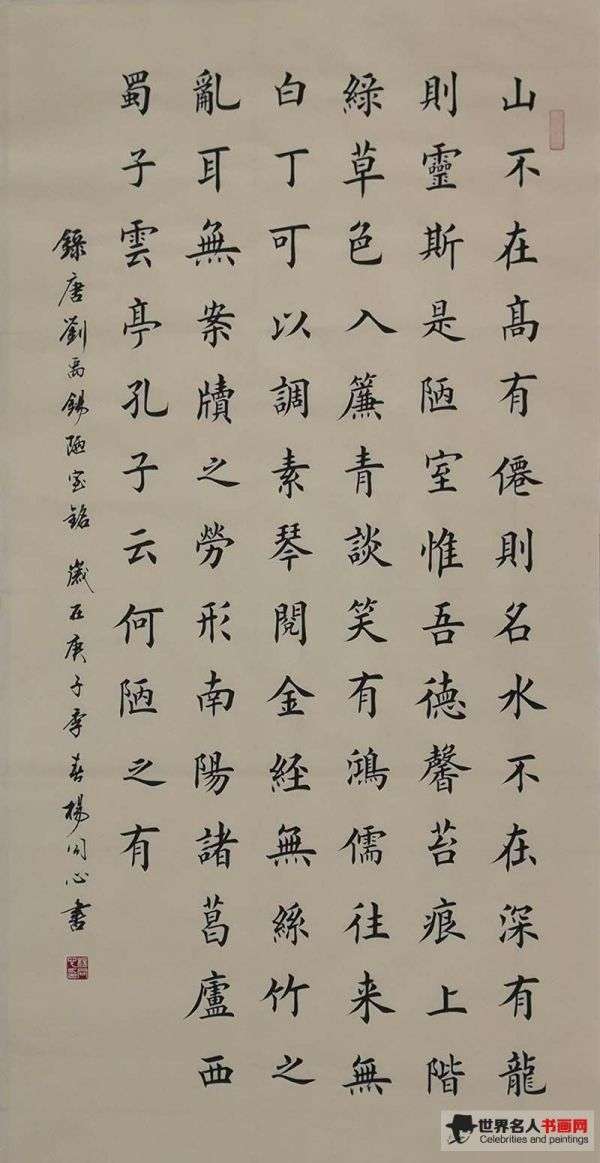 山不在髙有僊則名水不在深有龍
則靈斯是陋室惟吾德馨苔痕上階
綠草色入簾青談笑有鴻儒往来無
白丁可以調素琴閱金経無絲竹之
亂耳無案牘之勞形南陽諸葛廬西
蜀子雲亭孔子云何陋之有
錄唐劉禹錫陋室銘 歲在庚子季春楊同心書
世界名人书画网
Celebrities and paintings